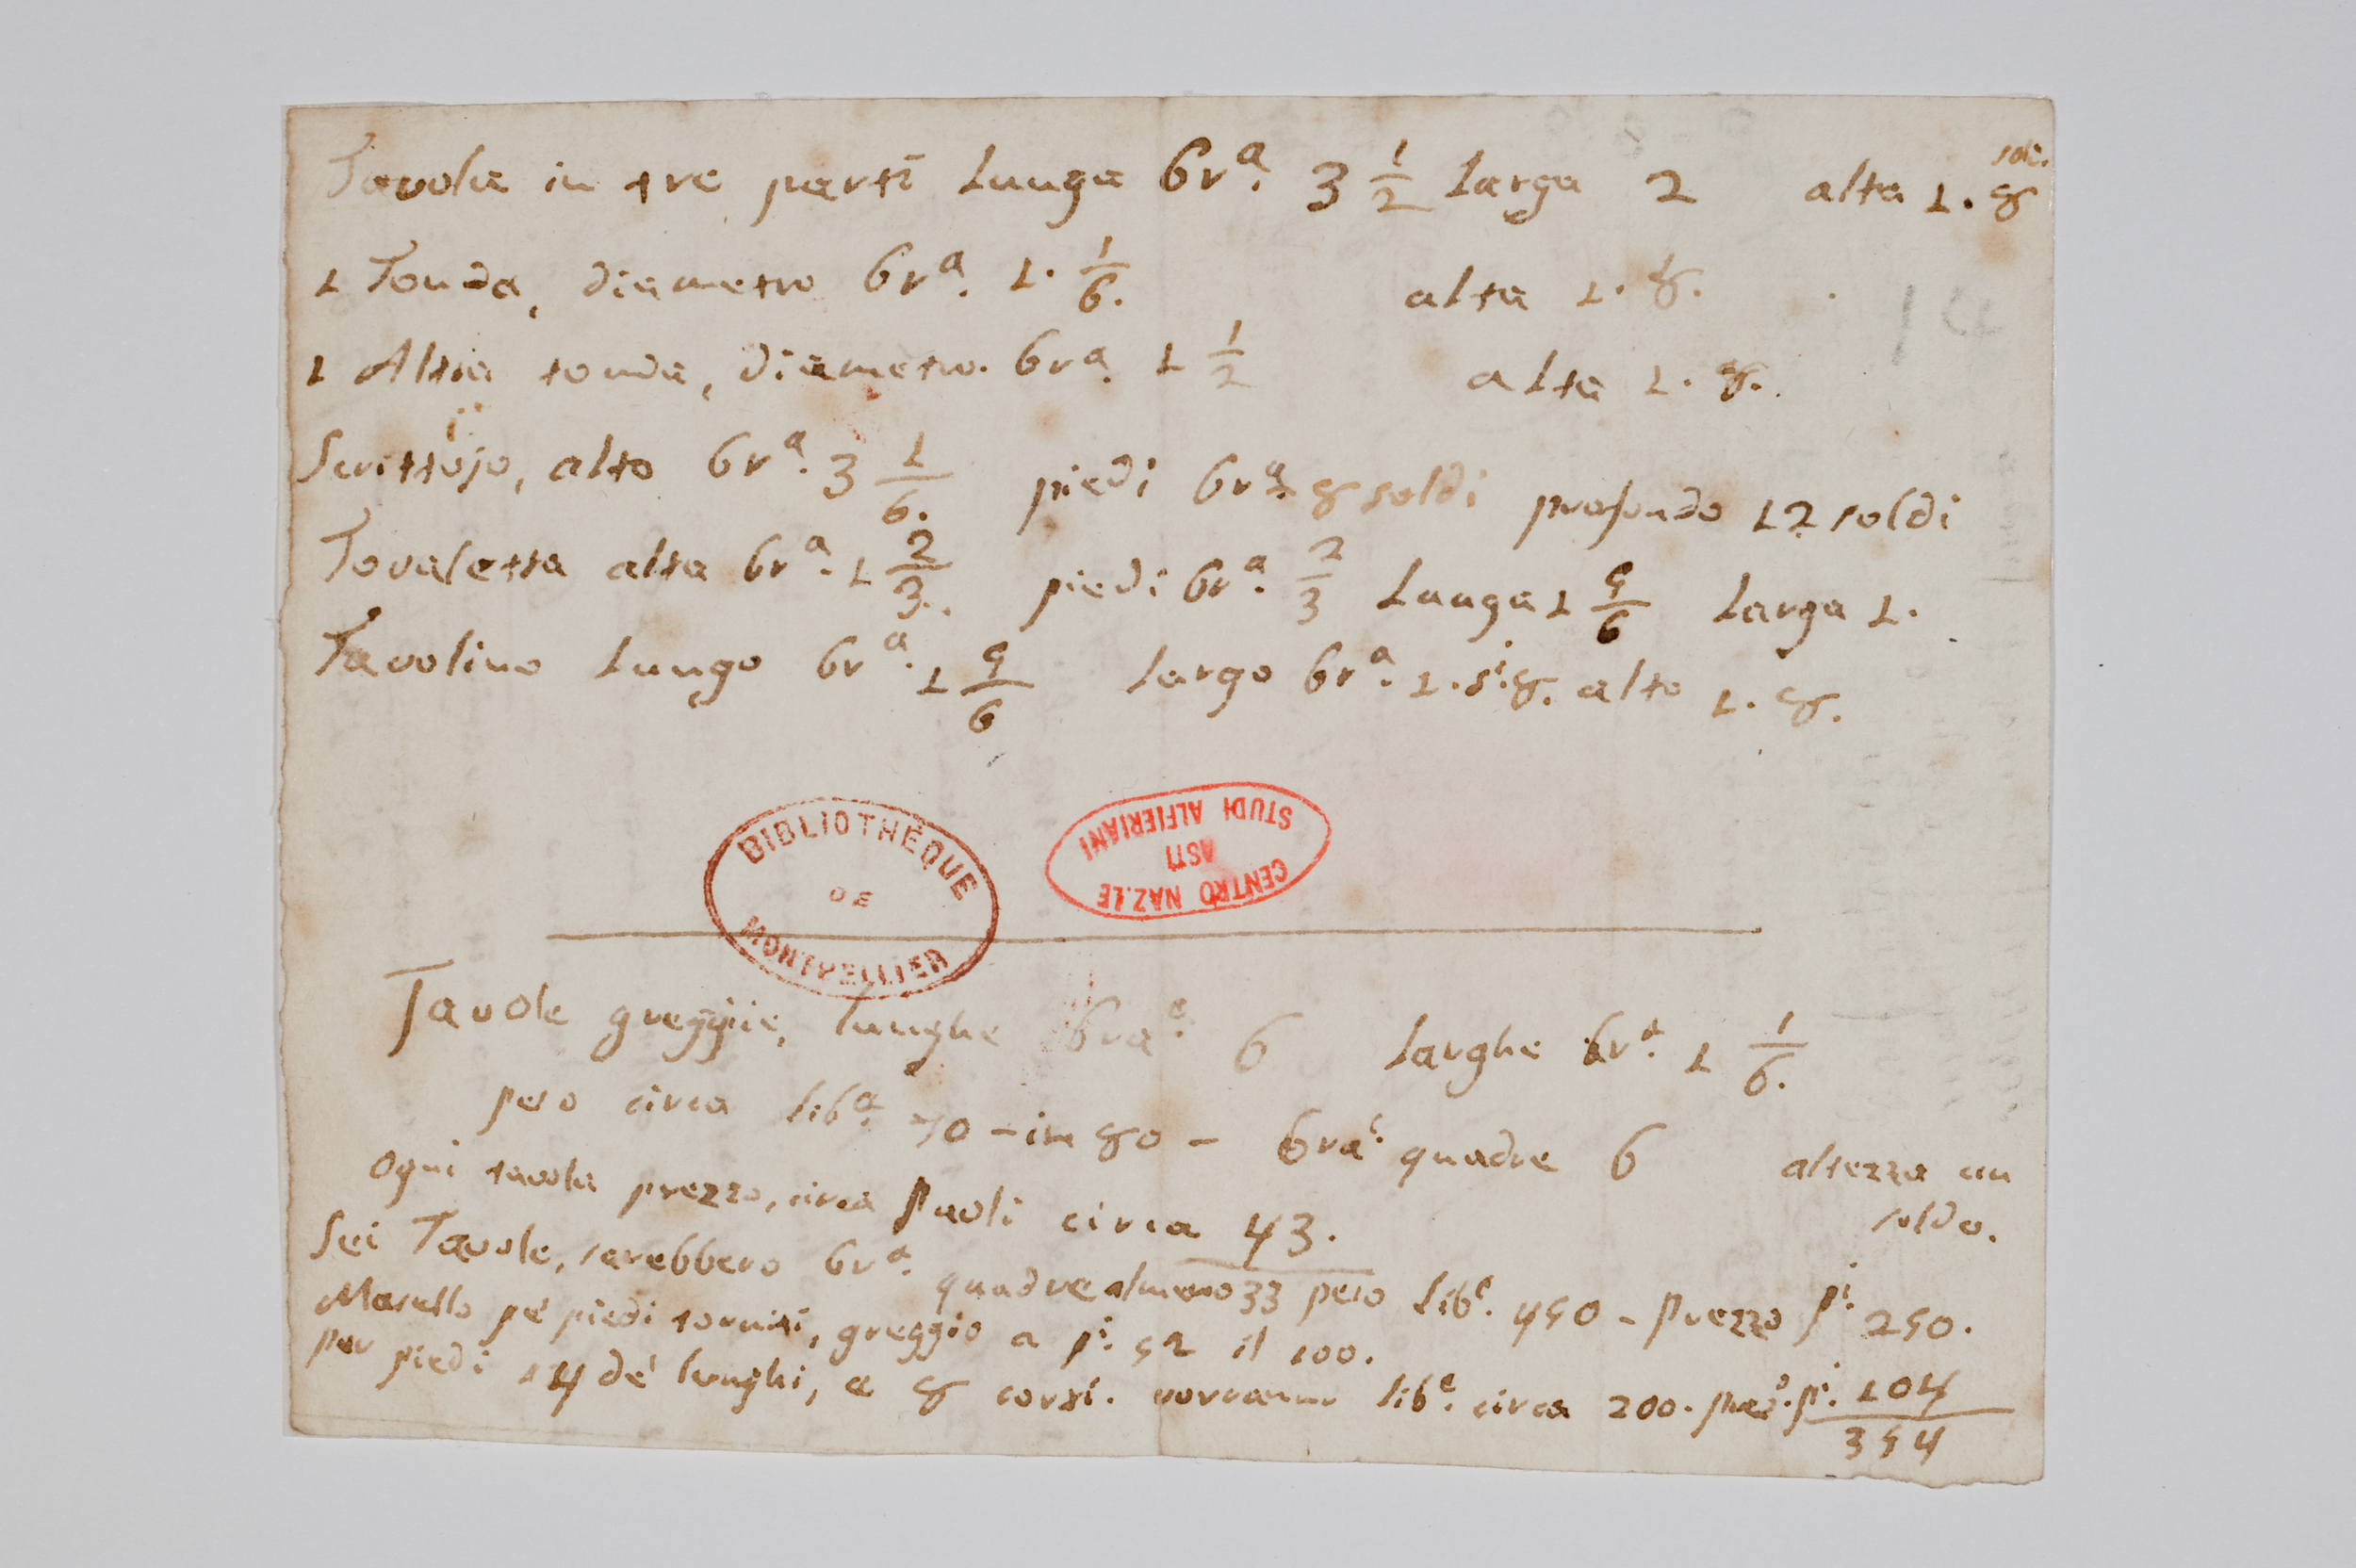 Tavola in tre parti Lunga bra. 3 1/2 Larga 2 alta 1. 8 sol.
1 Tonda, diametro bra. 1. 1/6. alta 1. 8.
1 Altra tonda, diametro. bra. 1 1/2 alta 1. 8.
Scrittojo, alto bra. 3 1/6. piedi bra. 8 soldi profondo 12 soldi
Tovaletta alta bra. 1 2/3. piedi bra. 2/3 Lunga 1 5/6 Larga 1.
Tavolino Lungo bra. 1 5/6 Largo bra. 1. si. 8. alto 1. 8.
BIBLIOTHÈQUE
DE
MONTPELLIER
CENTRO NAZ.LE
ASTI
STUDI ALFIERIANI
Tavole greggie, lunghe brae. 6 Larghe bra. 1 1/6.
peso circa liba. 70 - in 80 - brae. quadre 6 altezza un
soldo.
Ogni tavola prezzo, circa Paoli circa 43.
Sei Tavole, sarebbero bra. quadre almeno 33 peso Libe. 450 - prezzo pi. 250.
Masello pe' piedi torniti, greggio a pi. 52 il 100.
per piedi 14 de' lunghi, e 8 corti. vorranno libe. circa 200. prezo. pi. 104
354